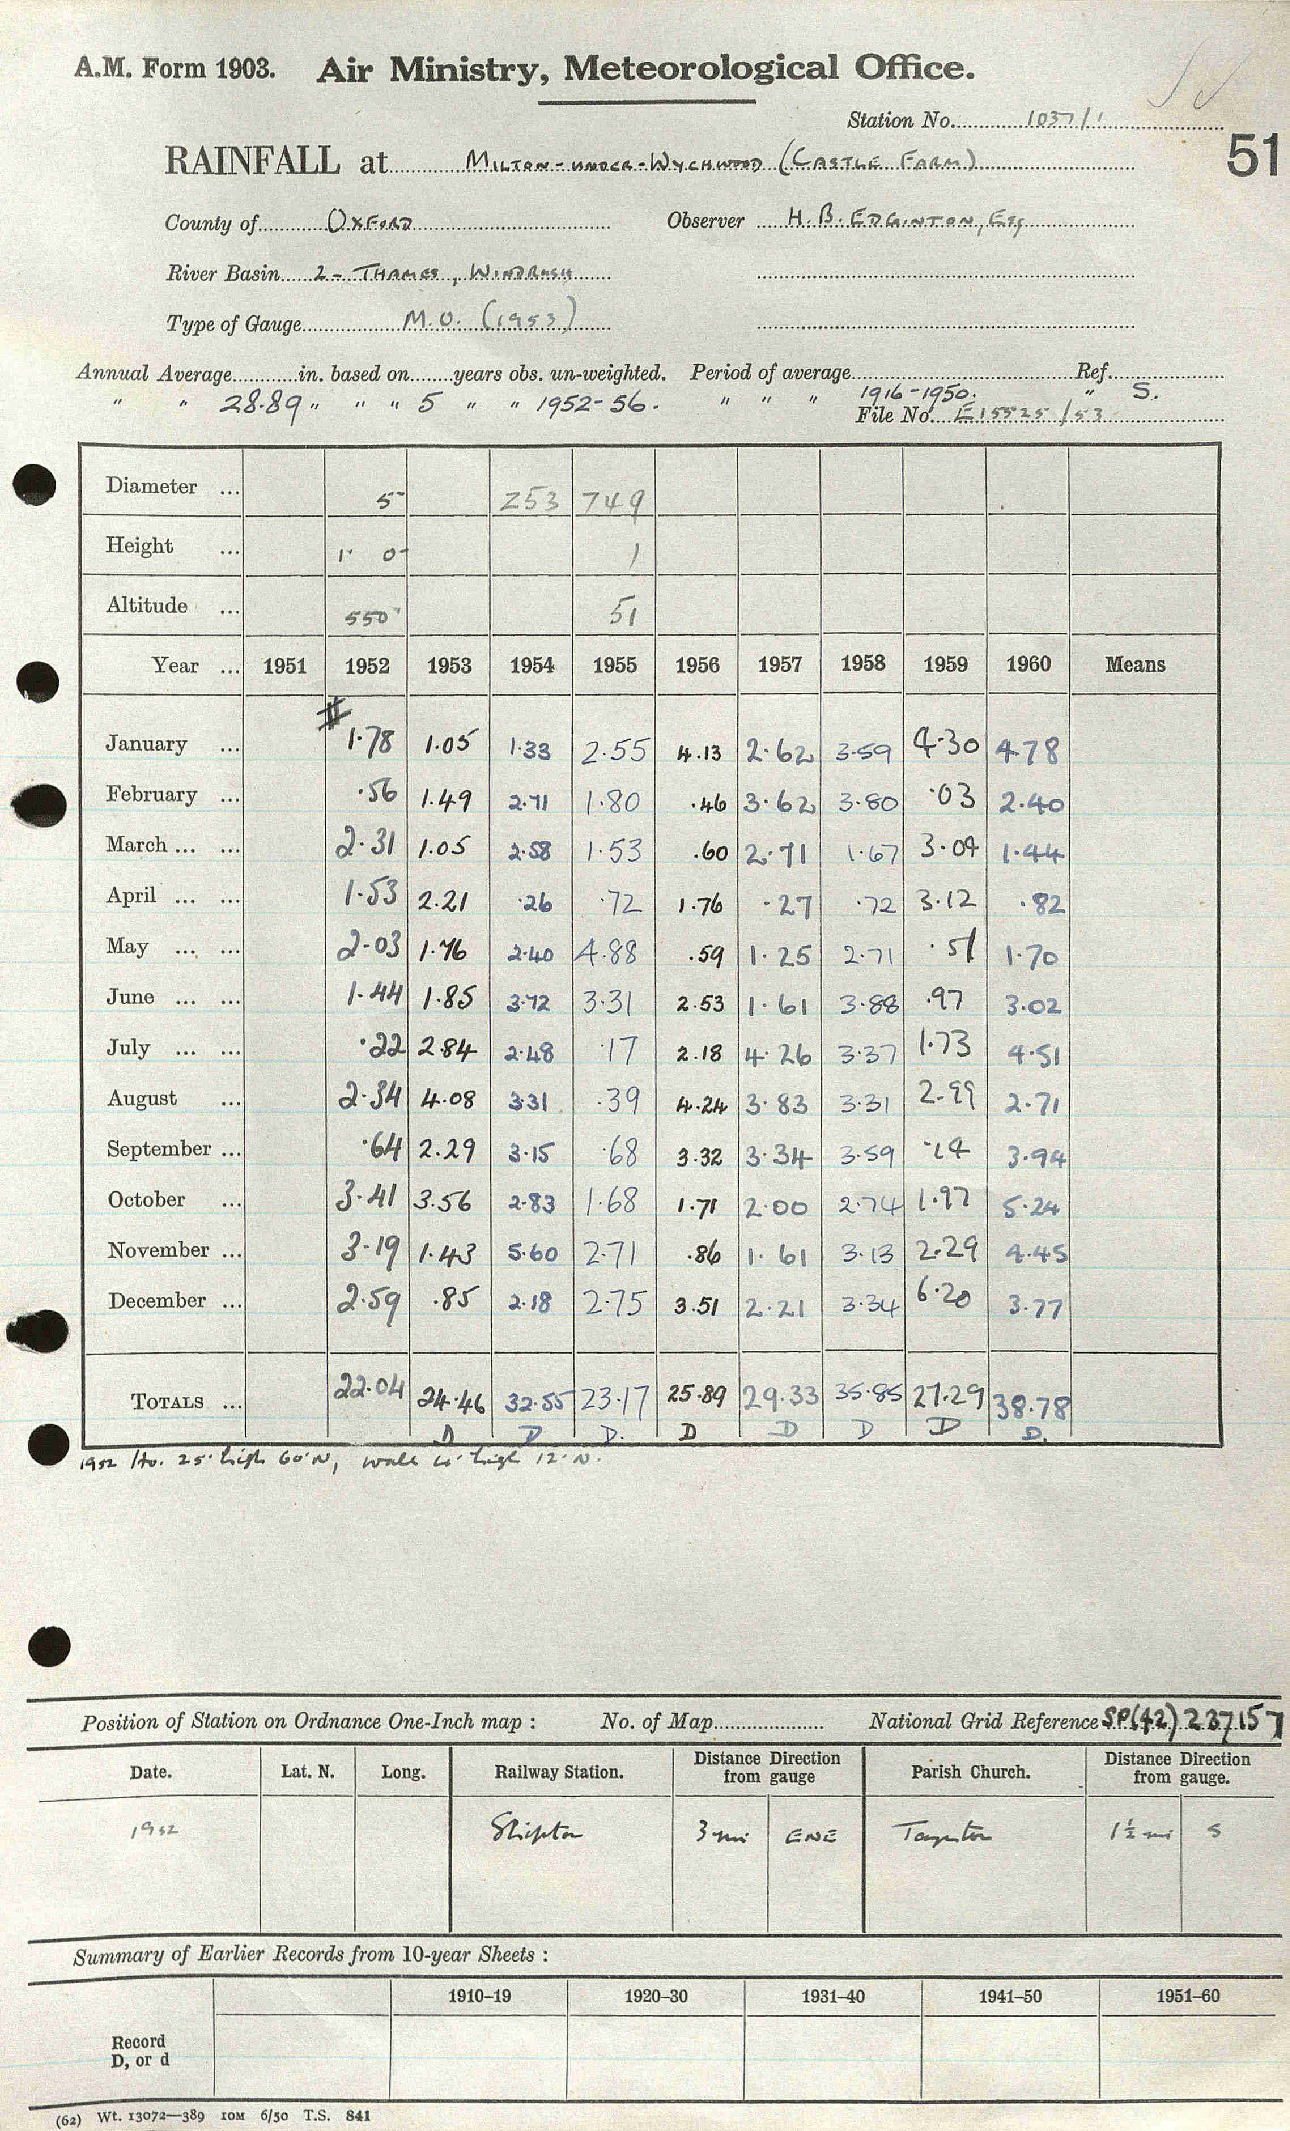 A.M. Form 1903. Air Ministry, Meteorological Office.
Station No. 1037/1
51
RAINFALL at MILTON-UNDER-WYCHWOOD (CASTLE FARM)
County of OXFORD Observer H. B. EDGINTON, Esq
River Basin 2 - THAMES, WINDRUSH
Type of Gauge M.O. (1953)
Annual Average in. based on years obs. un-weighted. Period of average Ref.
" " 28.89 " " " 5 " " 1952-56. " " " 1916-1950. " S.
File No. E15525/53
Diameter ... 5 253 749
Height ... 1' 0" 1
Altitude ... 550' 51
Year ... 1951 1952 1953 1954 1955 1956 1957 1958 1959 1960 Means
January ... 1.78 1.05 1.33 2.55 4.13 2.62 3.59 4.30 4.78
February ... .56 1.49 2.71 1.80 .46 3.62 3.80 .03 2.40
March ... ... 2.31 1.05 2.58 1.53 .60 2.71 1.67 3.04 1.44
April ... ... 1.53 2.21 .26 .72 1.76 .27 .72 3.12 .82
May ... ... 2.03 1.76 2.40 4.88 .59 1.25 2.71 .51 1.70
June ... ... 1.44 1.85 3.72 3.31 2.53 1.61 3.88 .97 3.02
July ... ... .22 2.84 2.48 .17 2.18 4.26 3.37 1.73 4.51
August ... 2.34 4.08 3.31 .39 4.24 3.83 3.31 2.99 2.71
September ... .64 2.29 3.15 .68 3.32 3.34 3.59 .14 3.94
October ... 3.41 3.56 2.83 1.68 1.71 2.00 2.74 1.97 5.24
November ... 3.19 1.43 5.60 2.71 .86 1.61 3.13 2.29 4.45
December ... 2.59 .85 2.18 2.75 3.51 2.21 3.34 6.20 3.77
TOTALS ... 22.04 24.46 32.55 23.17 25.89 29.33 35.85 27.29 38.78
D D D. D D D D D.
1952 Ho. 25' high 60' N, wall 4' high 12' N.
Position of Station on Ordnance One-Inch map : No. of Map National Grid Reference SP(42) 237157
Date. Lat. N. Long. Railway Station. Distance Direction from gauge Parish Church. Distance Direction from gauge.
1952 Shipton 3 mi ENE Taynton 1½ mi S
Summary of Earlier Records from 10-year Sheets :
1910–19 1920–30 1931–40 1941–50 1951–60
Record
D, or d
(62) Wt. 13072—389 10M 6/50 T.S. 841